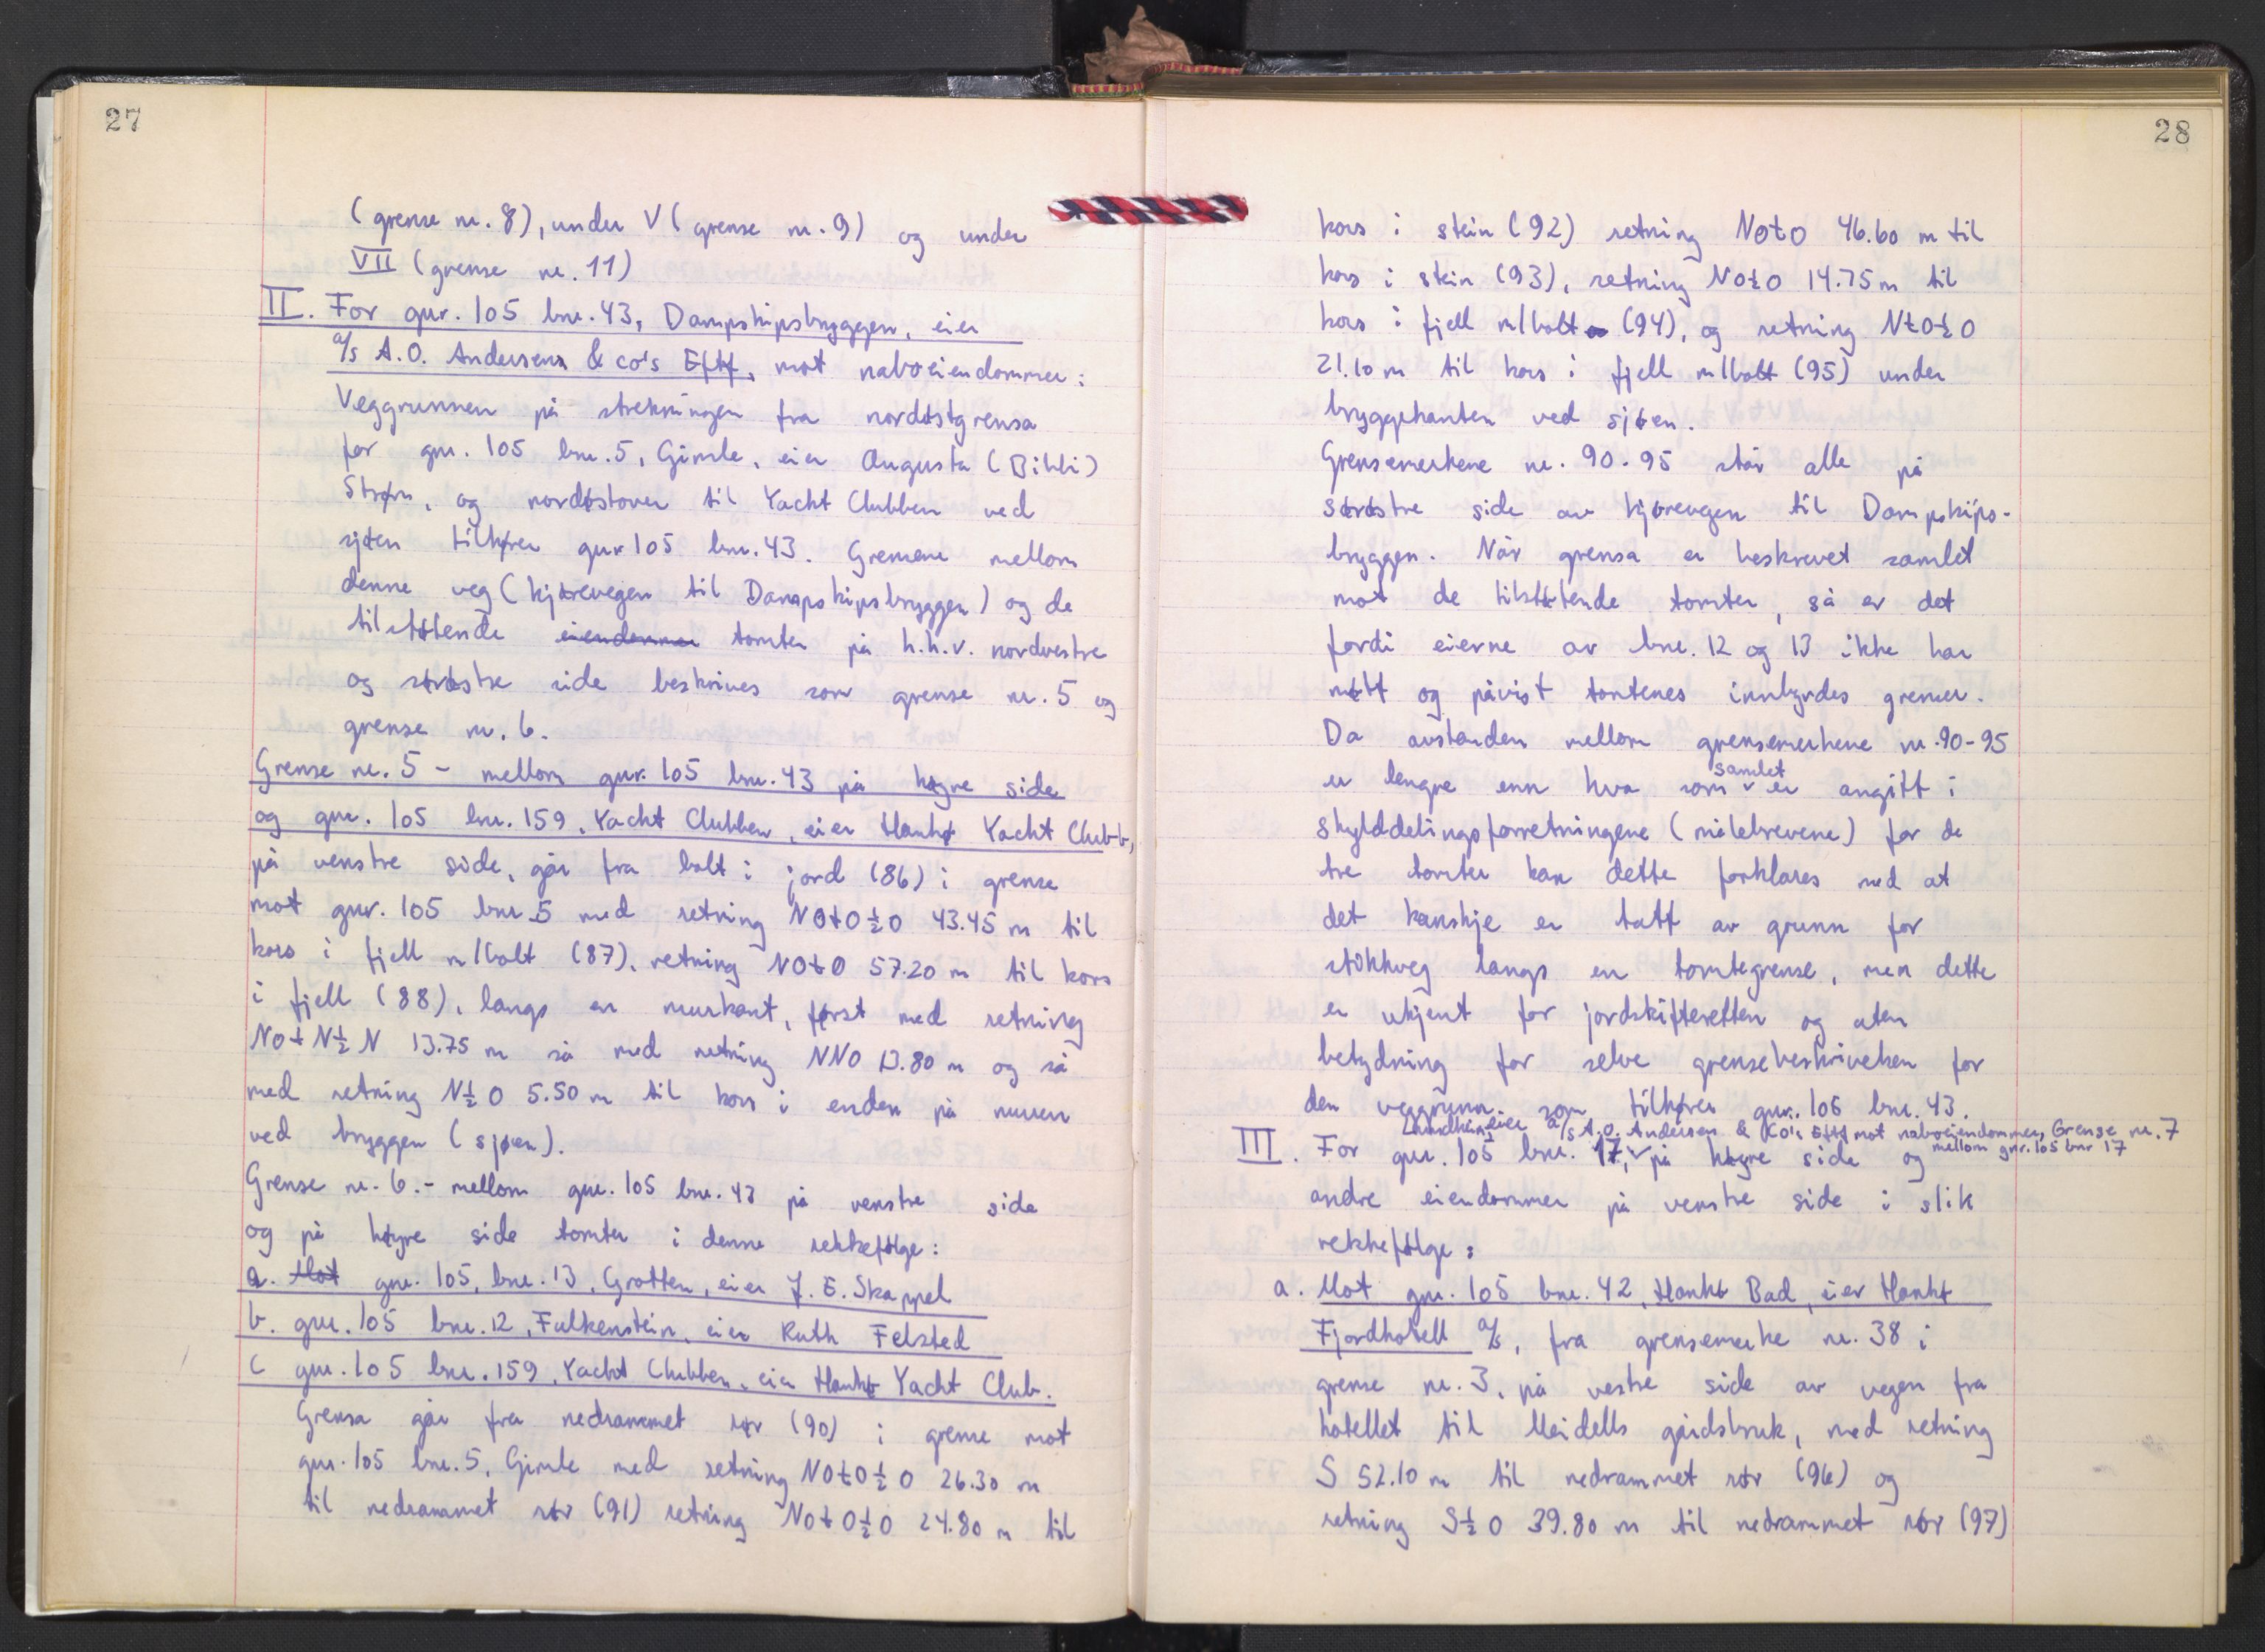 27
(grense nr. 8), under V (grense nr. 9) og under
VII (grense nr. 11)
II. For gnr. 105 bnr. 43, Dampskipsbryggen, eier
a/s A.O. Andersens & co's Eftf, mot naboeiendommer:
Veggrunnen på strekningen fra nordøstgrensa
for gnr. 105 bnr. 5, Gimle, eier Augusta (Bibbi)
Strøm, og nordøstover til Yacht Clubben ved
sjøen tilhører gnr 105 bnr. 43. Grensene mellom
denne veg (kjørevegen til Dampskipsbryggen) og de
tilstøtende eiendommer tomter på h.h.v. nordvestre
og sørøstre side beskrives som grense nr. 5 og
grense nr. 6.
Grense nr. 5 - mellom gnr. 105 bnr. 43 på høgre side
og gnr. 105 bnr. 159, Yacht Clubben, eier Hankø Yacht Clubb,
på venstre side, går fra bolt i jord (86) i grense
mot gnr. 105 bnr. 5 med retning NOtO½O 43.45 m til
kors i fjell m/bolt (87), retning NOtO 57.20 m til kors
i fjell (88), langs en murkant, først med retning
NOtN½N 13.75 m så med retning NNO 13.80 m og så
med retning N½O 5.50 m til kors i enden på muren
ved bryggen (sjøen).
Grense nr. 6.- mellom gnr. 105 bnr. 43 på venstre side
og på høgre side tomter i denne rekkefølge:
a. Mot gnr. 105, bnr. 13, Grotten, eier J. E. Skappel
b. gnr. 105 bnr. 12, Falkenstein, eier Ruth Felsted
c gnr. 105 bnr. 159, Yacht Clubben, eier Hankø Yacht Club.
Grensa går fra nedrammet rør (90) i grense mot
gnr. 105 bnr. 5, Gimle med retning NOtO½O 26.30 m
til nedrammet rør (91) retning NOtO½O 24.80 m til
28
kors i stein (92) retning NOtO 46.60 m til
kors i stein (93), retning NOtO 14.75 m til
kors i fjell m/bolt (94), og retning NtO½O
21.10 m til kors i fjell m/bolt (95) under
bryggekanten ved sjøen.
Grensemerkene nr. 90-95 står alle på
sørøstre side av kjørevegen til Dampskips-
bryggen. Når grensa er beskrevet samlet
mot de tilstøtende tomter, så er det
fordi eierne av bnr. 12 og 13 ikke har
møtt og påvist tomtenes innbyrdes grenser.
Da avstanden mellom grensemerkene nr. 90-95
samlet
er lengre enn hva som er angitt i
skylddelingsforretningene (målebrevene) for de
tre tomter kan dette forklares med at
det kanskje er tatt av grunn for
stikkveg langs en tomtegrense, men dette
er ukjent for jordskifteretten og uten
betydning for selve grensebeskrivelsen for
den veggrunn som tilhører gnr. 105 bnr. 43.
eier a/s A.O. Andersen & Co's Eftf mot naboeiendommer, Grense nr. 7
mellom gnr. 105 bnr 17
III. For gnr. 105 bnr. 17, på høgre side og
andre eiendommer på venstre side i slik
rekkefølge:
a. Mot gnr. 105 bnr. 42, Hankø Bad, eier Hankø
Fjordhotell a/s, fra grensemerke nr. 38 i
grense nr. 3, på vestre side av vegen fra
hotellet til Meidells gårdsbruk, med retning
S 52.10 m til nedrammet rør (96) og
retning S½O 39.80 m til nedrammet rør (97)